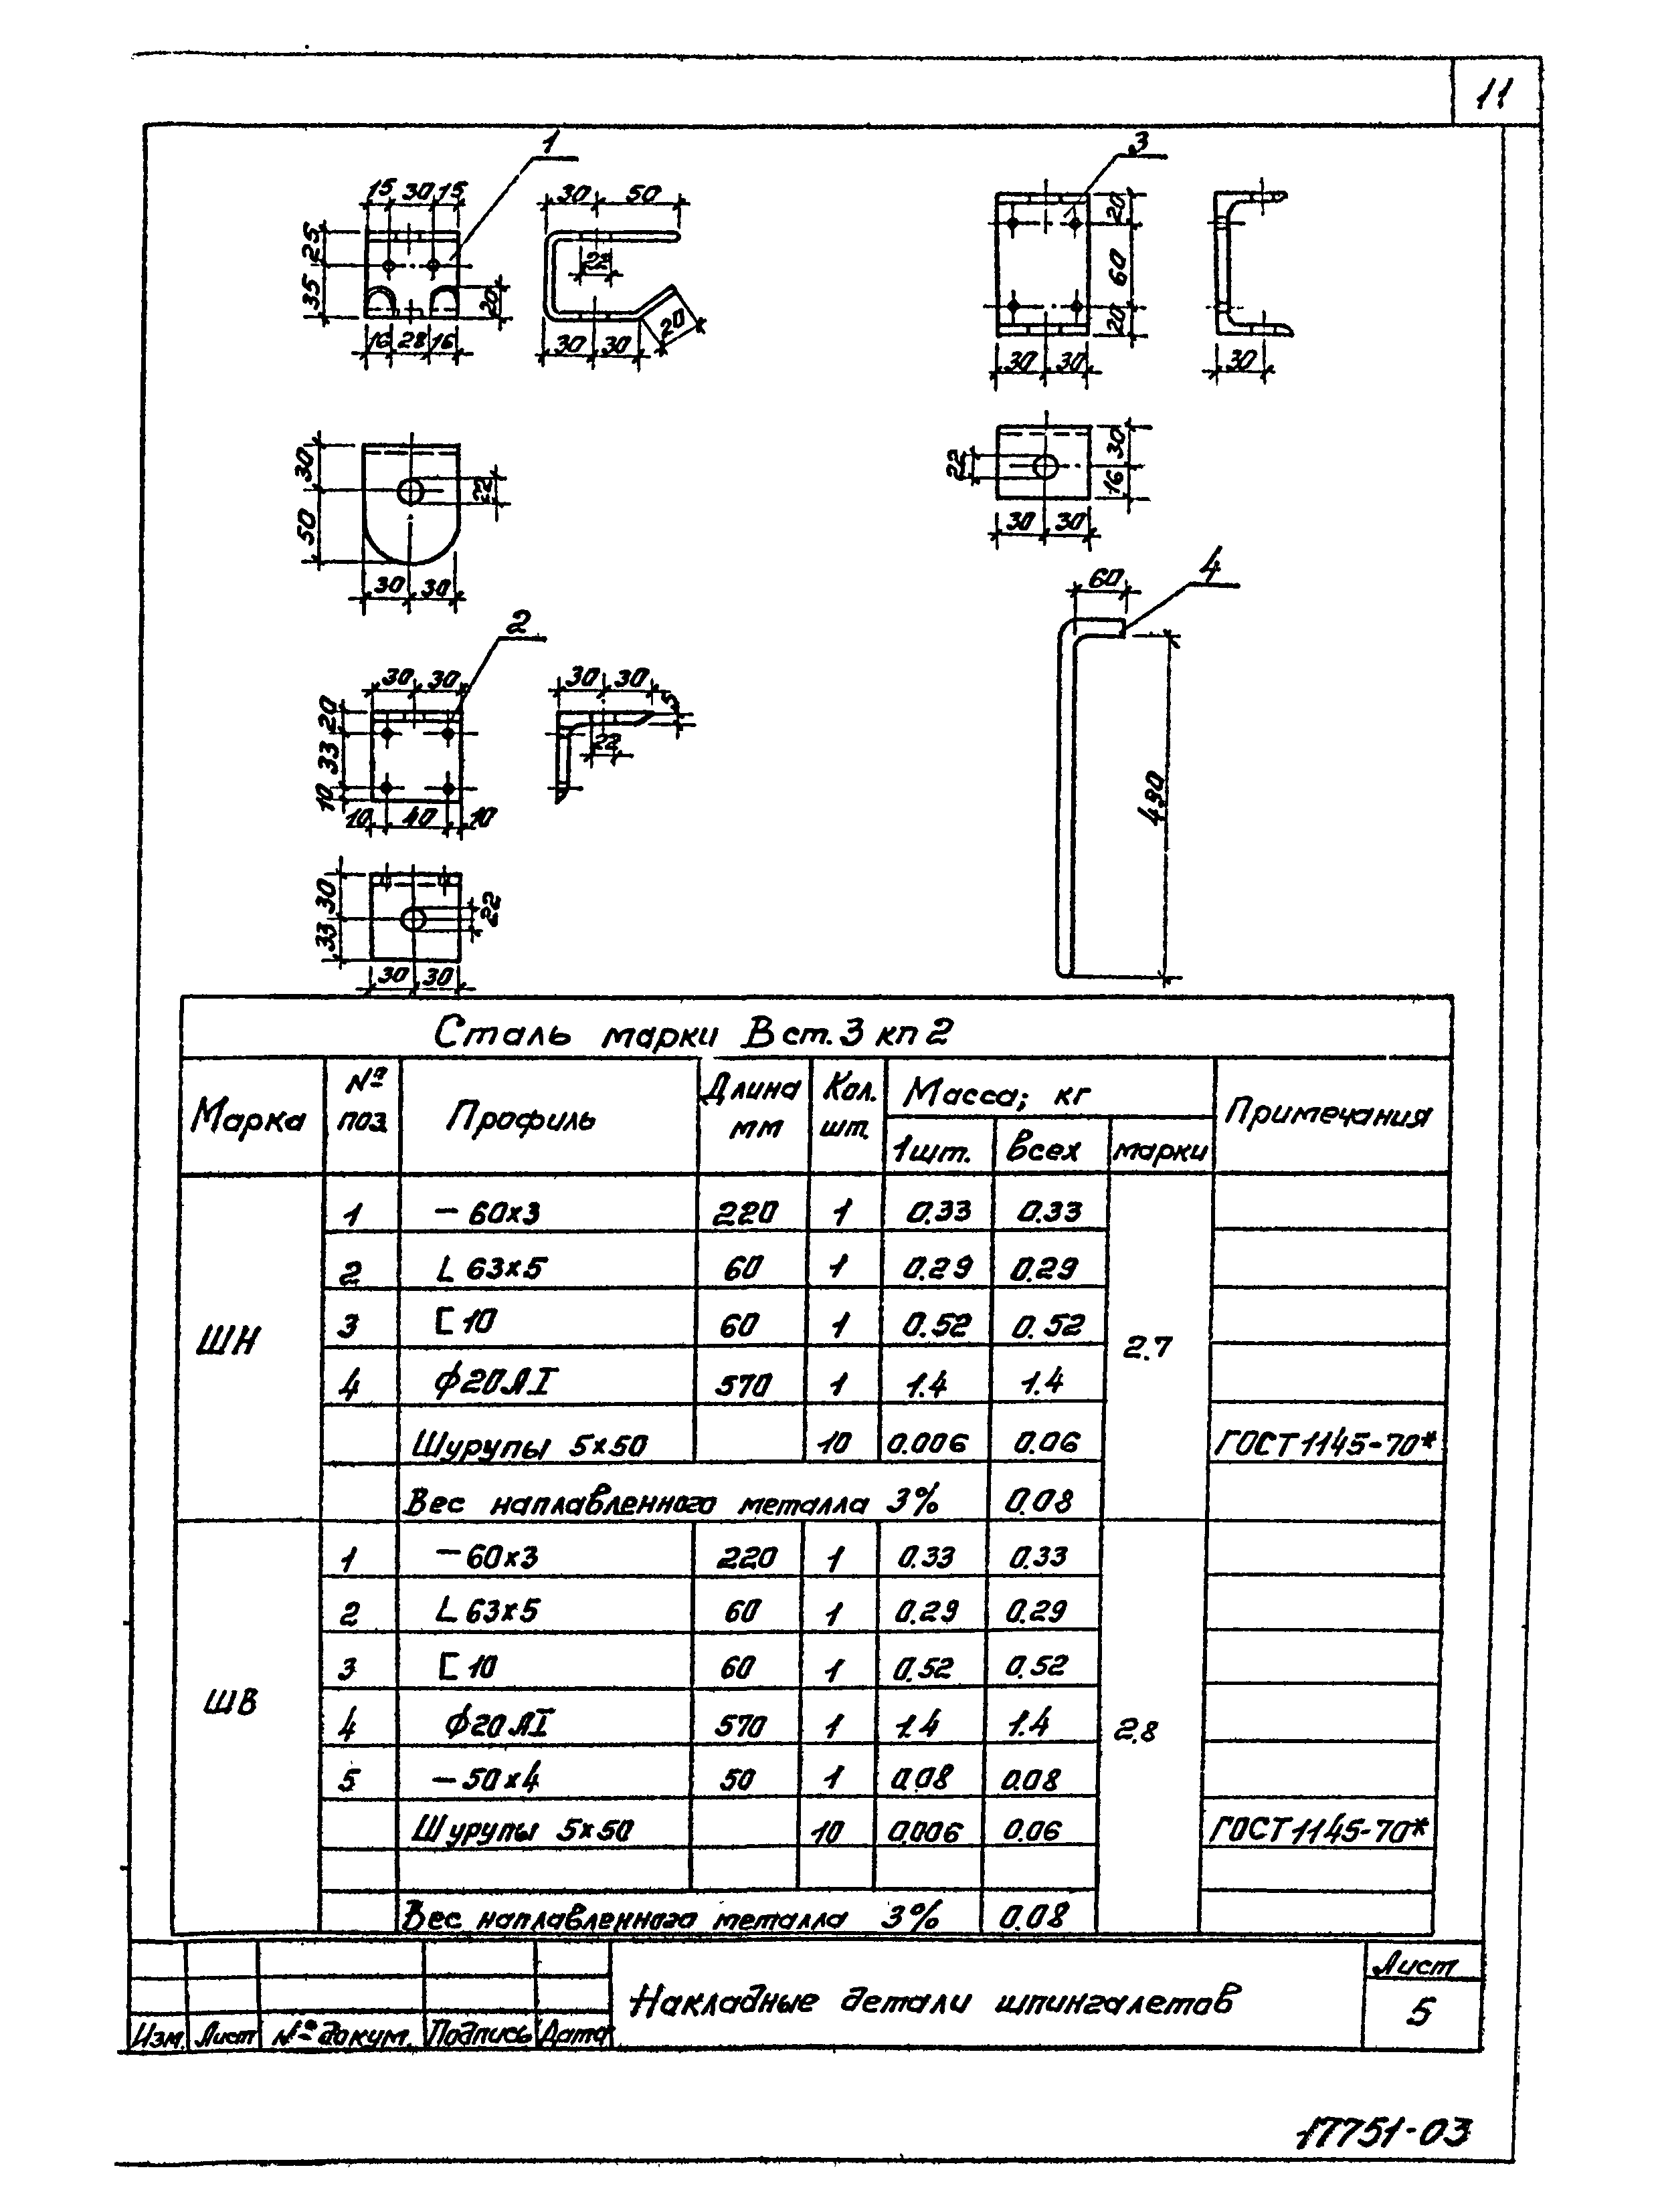 11
1
15 30 15
25
35
20
16 28 16
30 50
22
30 30
20
30
50
22
30 30
3
20
60
20
30 30
30
22
30
16
30 30
2
30 30
20
33
10
10 40 10
30 30
5
22
30
33
22
30 30
4
60
490
Сталь марки В ст. 3 кп 2
Марка № поз. Профиль Длина мм Кол. шт. Масса; кг Примечания
1шт. всех марки
ШН
1 — 60×3 220 1 0.33 0.33
2 L 63×5 60 1 0.29 0.29
3 [ 10 60 1 0.52 0.52
2.7
4 ф20 АI 570 1 1.4 1.4
Шурупы 5×50 10 0.006 0.06 ГОСТ 1145-70*
Вес наплавленного металла 3% 0.08
ШВ
1 — 60×3 220 1 0.33 0.33
2 L 63×5 60 1 0.29 0.29
3 [ 10 60 1 0.52 0.52
4 ф20 АI 570 1 1.4 1.4
2.8
5 — 50×4 50 1 0.08 0.08
Шурупы 5×50 10 0.006 0.06 ГОСТ 1145-70*
Вес наплавленного металла 3% 0.08
Изм. Лист № докум. Подпись Дата
Накладные детали шпингалетов
Лист
5
17751-03